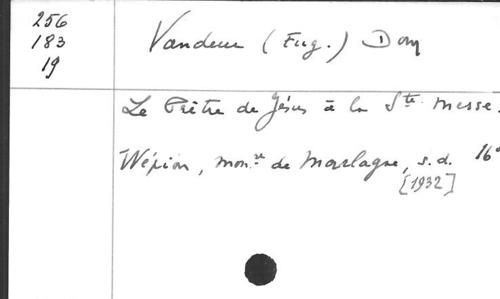 256
183
19
Vandeur (Eug.) Dom
Le Prêtre de Jésus à la Ste Messe.
Wépion, mon.re de Marlagne, s.d. 16°
[1932]